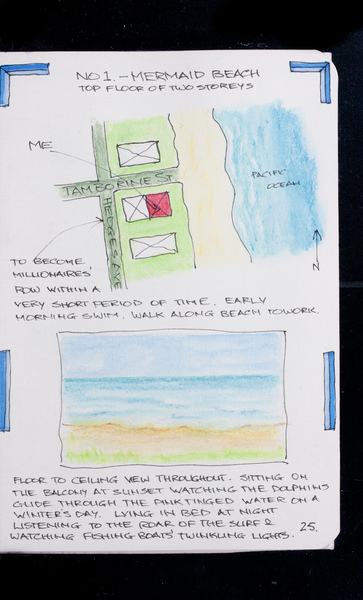 NO 1. - MERMAID BEACH
TOP FLOOR OF TWO STOREYS
ME
TAMBORINE ST
HEDGES AVE
PACIFIC
OCEAN
N
TO BECOME
MILLIONAIRES'
ROW WITHIN A
VERY SHORT PERIOD OF TIME. EARLY
MORNING SWIM. WALK ALONG BEACH TO WORK.
FLOOR TO CEILING VIEW THROUGHOUT. SITTING ON
THE BALCONY AT SUNSET WATCHING THE DOLPHINS
GLIDE THROUGH THE PINK TINGED WATER ON A
WINTER'S DAY. LYING IN BED AT NIGHT
LISTENING TO THE ROAR OF THE SURF &
WATCHING FISHING BOATS' TWINKLING LIGHTS.
25.